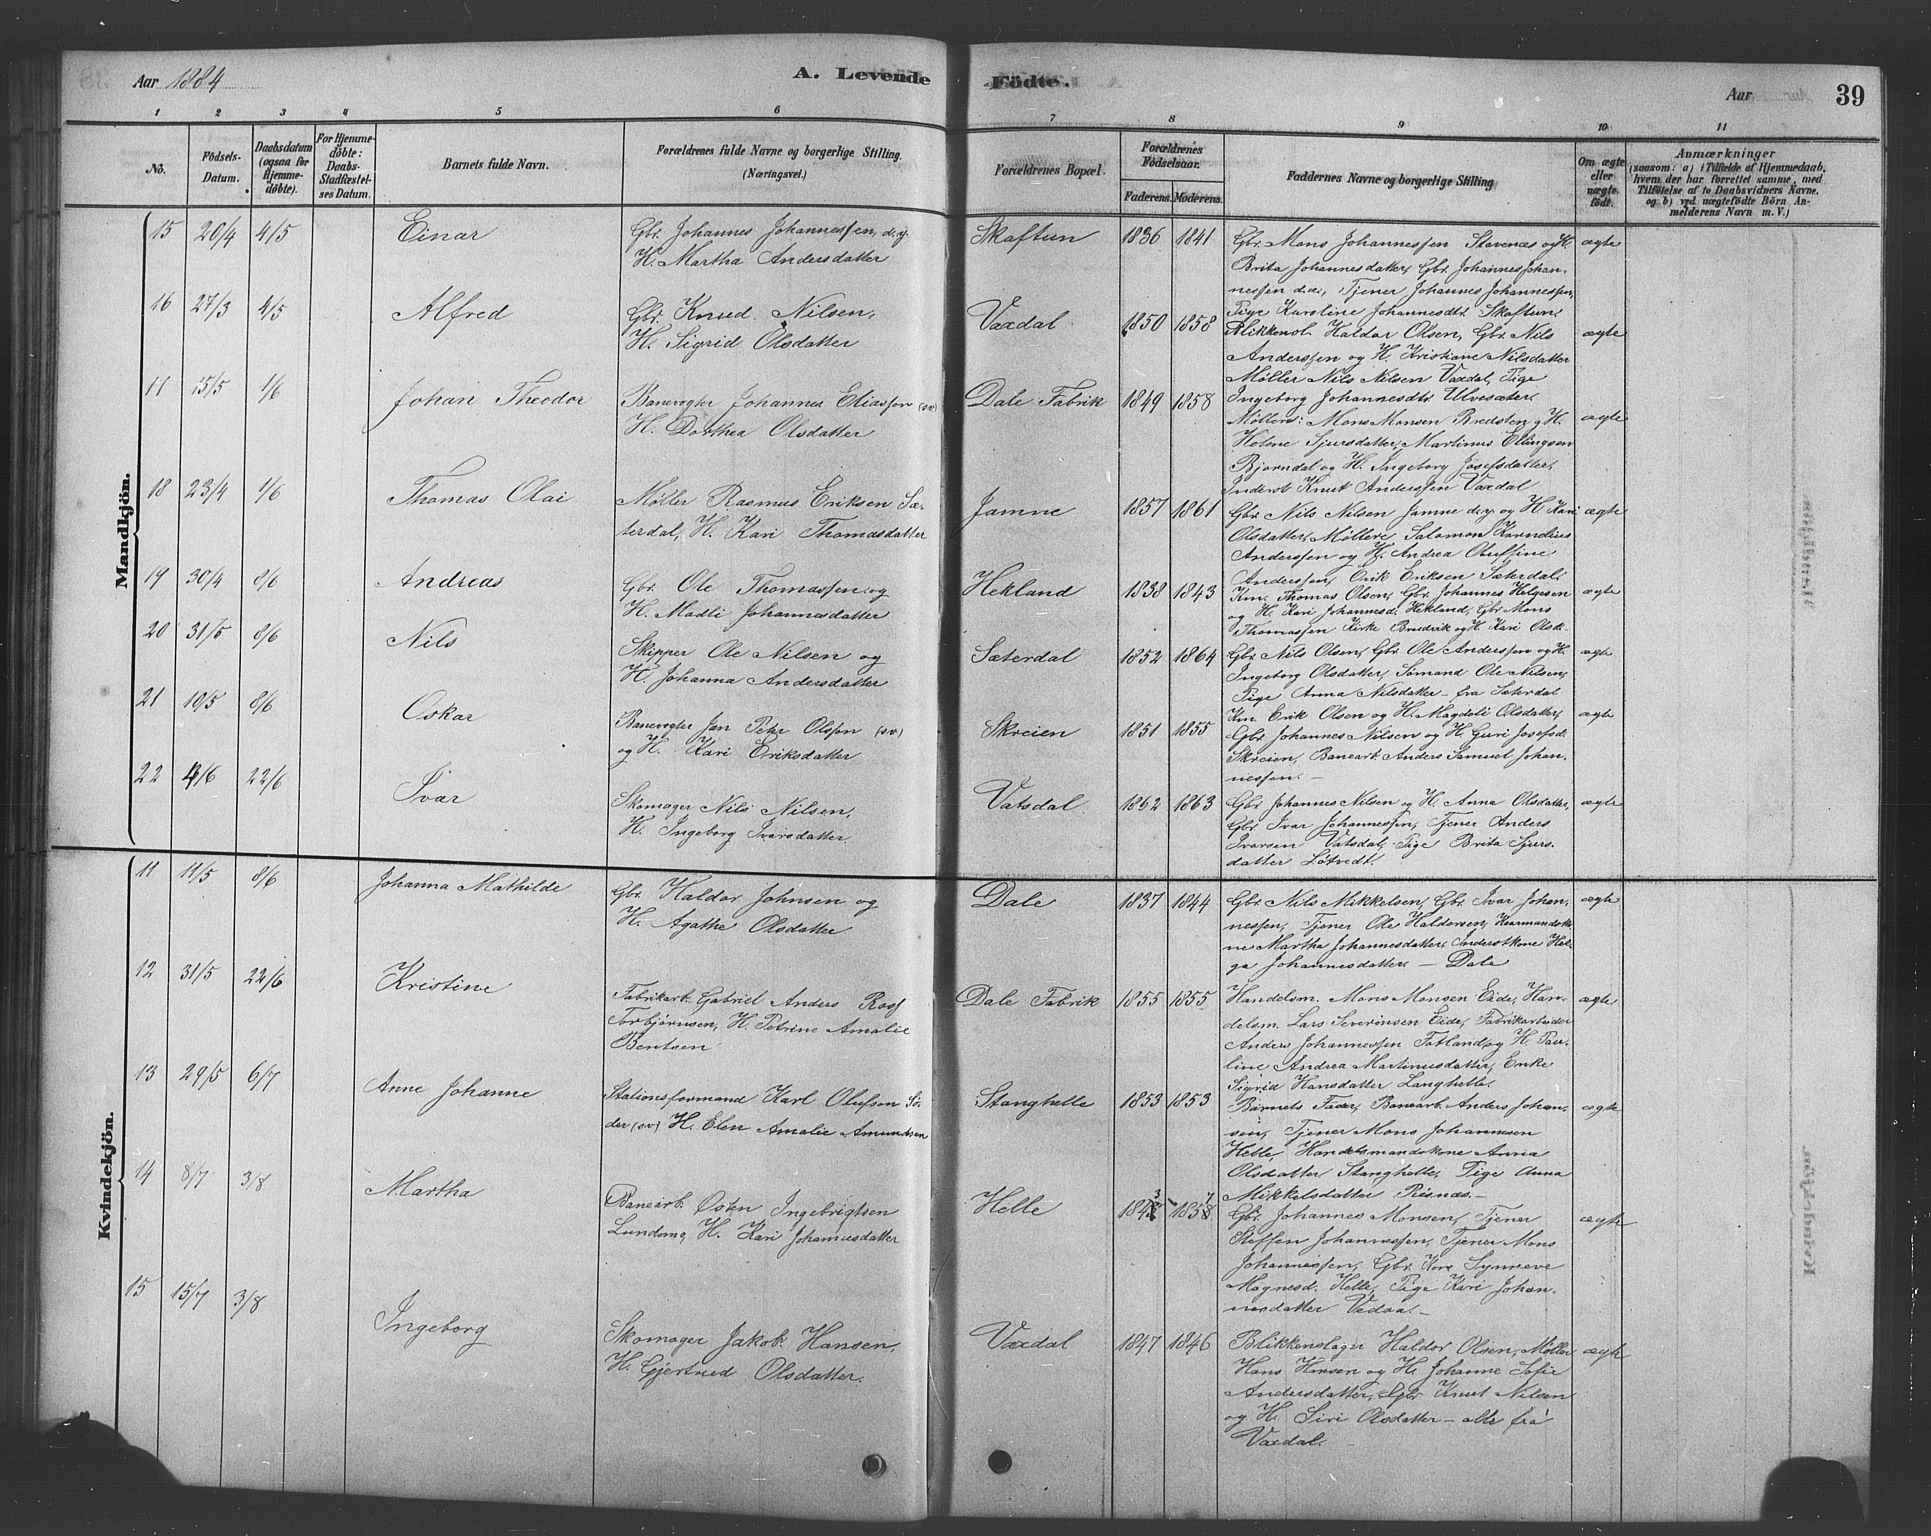 Aar 1884
A. Levende
Födte.
Aar
39
1 2 3 4 5 6
7 8 9 10 11
No.
Födsels-Datum.
Daabsdatum (ogsaa for Hjemmedöbte).
For Hjemmedöbte: Daabs-Stadfæstelses Datum.
Barnets fulde Navn.
Forældrenes fulde Navne og borgerlige Stilling. (Næringsvei.)
Forældrenes Bopæl.
Forældrenes Födselsaar.
Faderens. Moderens.
Faddernes Navne og borgerlige Stilling
Om ægte eller uægte födt.
Anmærkninger
(saasom: a) i Tilfælde af Hjemmedaab,
hvem der har forrettet samme, med
Tilföielse af to Daabsvidners Navne.
og b) ved uægtefödte Börn An-
melderens Navn m. V.)
Mandkjön.
15 20/4 4/5 Einar
Gbr. Johannes Johannessen, d.y.
H. Martha Andersdatter
Skaftun 1836 1841
Gbr. Mons Johannessen Stavenæs og H. ægte
Brita Johannesdatter, Gbr. Johannes Johan-
nessen d.æ., Tjener Johannes Johannessen,
Pige Karoline Johannesdt. Skaftun.
16 27/3 4/5 Alfred
Gbr. Knud Nilsen,
H. Sigrid Olsdatter
Vaxdal 1850 1858
Blikkensl. Haldor Olsen, Gbr. Nils ægte
Anderssen og H. Kristiane Nilsdatter
Møller Nils Nilsen Vaxdal, Pige
Ingeborg Johannesdtr. Ulvesæter.
17 15/5 1/6 Johan Theodor
Banevogter Johannes Eliassen (sv)
H. Dorthea Olsdatter
Dale Fabrik 1849 1858
Møllerne: Mons Monsen Bredsten og H. ægte
Helene Sjursdatter, Martinus Ellingsen
Bjørndal og H. Ingeborg Josefsdatter,
Inderst Knut Anderssen Vaxdal
18 23/4 1/6 Thomas Olai
Møller Rasmus Eriksen Sæ-
terdal, H. Kari Thomasdatter
Jamne 1857 1861
Gbr. Nils Nilsen Jamne d.y. og H. Kari ægte
Olsdatter, Møllere Salomon Kornelius
Anderssen og H. Andrea Oluffine
Anderssen, Erik Eriksen Sæterdal.
19 30/4 8/6 Andreas
Gbr. Ole Thomassen og
H. Madli Johannesdatter
Hekland 1838 1843
Km. Thomas Olsen, Gbr. Johannes Helgesen ægte
og H. Kari Johannesd. Hekland, Gbr. Mons
Thomassen Kirke Brudvik og H. Kari Olsdt.
20 31/5 8/6 Nils
Skipper Ole Nilsen og
H. Johanna Andersdatter
Sæterdal 1852 1864
Gbr. Nils Olsen, Gbr. Ole Anderssen og H. ægte
Ingeborg Olsdatter, Sømand Ole Nilsen,
Pige Anna Nilsdatter - fra Sæterdal
21 10/5 8/6 Oskar
Banevogter Jan Peter Olssen (sv)
og H. Kari Eriksdatter
Skreien 1851 1855
Km. Erik Olsen og H. Magdeli Olsdatter, ægte
Gbr. Johannes Nilsen og H. Guri Josefsd.
Skreien, Banearb. Anders Samuel Johan-
nessen. -
22 4/6 22/6 Ivar
Skomager Nils Nilsen,
H. Ingeborg Ivarsdatter.
Vatsdal 1862 1863
Gbr. Johannes Nilsen og H. Anna Olsdatter, ægte
Gbr. Ivar Johannessen, Tjener Anders
Ivarsen Vatsdal, Pige Brita Sjurs-
datter Løtvedt.
Kvindekjön.
11 11/5 8/6 Johanna Mathilde
Gbr. Haldor Johnsen og
H. Agathe Olsdatter
Dale 1837 1844
Gbr. Nils Mikkelsen, Gbr. Ivar Johan- ægte
nessen, Tjener Ole Haldorsen, Kaarmandsko-
ne Martha Johannesdatter, Inderstkone Hel-
ga Johannesdatter - Dale
12 31/5 22/6 Kristine
Fabrikarb. Gabriel Anders Ross
Torbjørnsen, H. Petrine Amalie
Bentsen
Dale Fabrik 1855 1855
Handelsm. Mons Monsen Eide, Han- ægte
delsm. Lars Severinsen Eide, Fabrikarbeider
Anders Johannessen Fotland og H. Pau-
line Andrea Martinusdatter, Enke
Sigrid Hansdatter Langhelle.
13 29/5 6/7 Anne Johanne
Stationsformand Karl Olufsen Sö-
der (sv) H. Elen Amalie Amundsen
Stanghelle 1853 1853
Barnets Fader, Banearb. Anders Johan- ægte
sen, Tjener Mons Johannesen
Helle, Handelsmandskone Anna
Olsdatter Stanghelle, Pige Anna
Mikkelsdatter Risnæs. -
14 8/7 3/8 Martha
Banearb. Østen Ingebrigtsen
Lundemo, H. Kari Johannesdatter
Helle 1843 1857
Gbr. Johannes Monsen, Tjener ægte
Steffen Johannessen, Tjener Mons
Johannessen, Gbr. Kone Synneve
Magnesd. Helle, Pige Kari Johan-
nesdatter Vedaa. -
15 15/7 3/8 Ingeborg
Skomager Jakob Hansen,
H. Gjertrud Olsdatter.
Vaxdal 1847 1846
Blikkenslager Haldor Olsen, Møller ægte
Hans Hansen og H. Johanne Sofie
Andersdatter, Gbr. Knut Nilsen
og H. Siri Olsdatter - alle fra
Vaxdal.